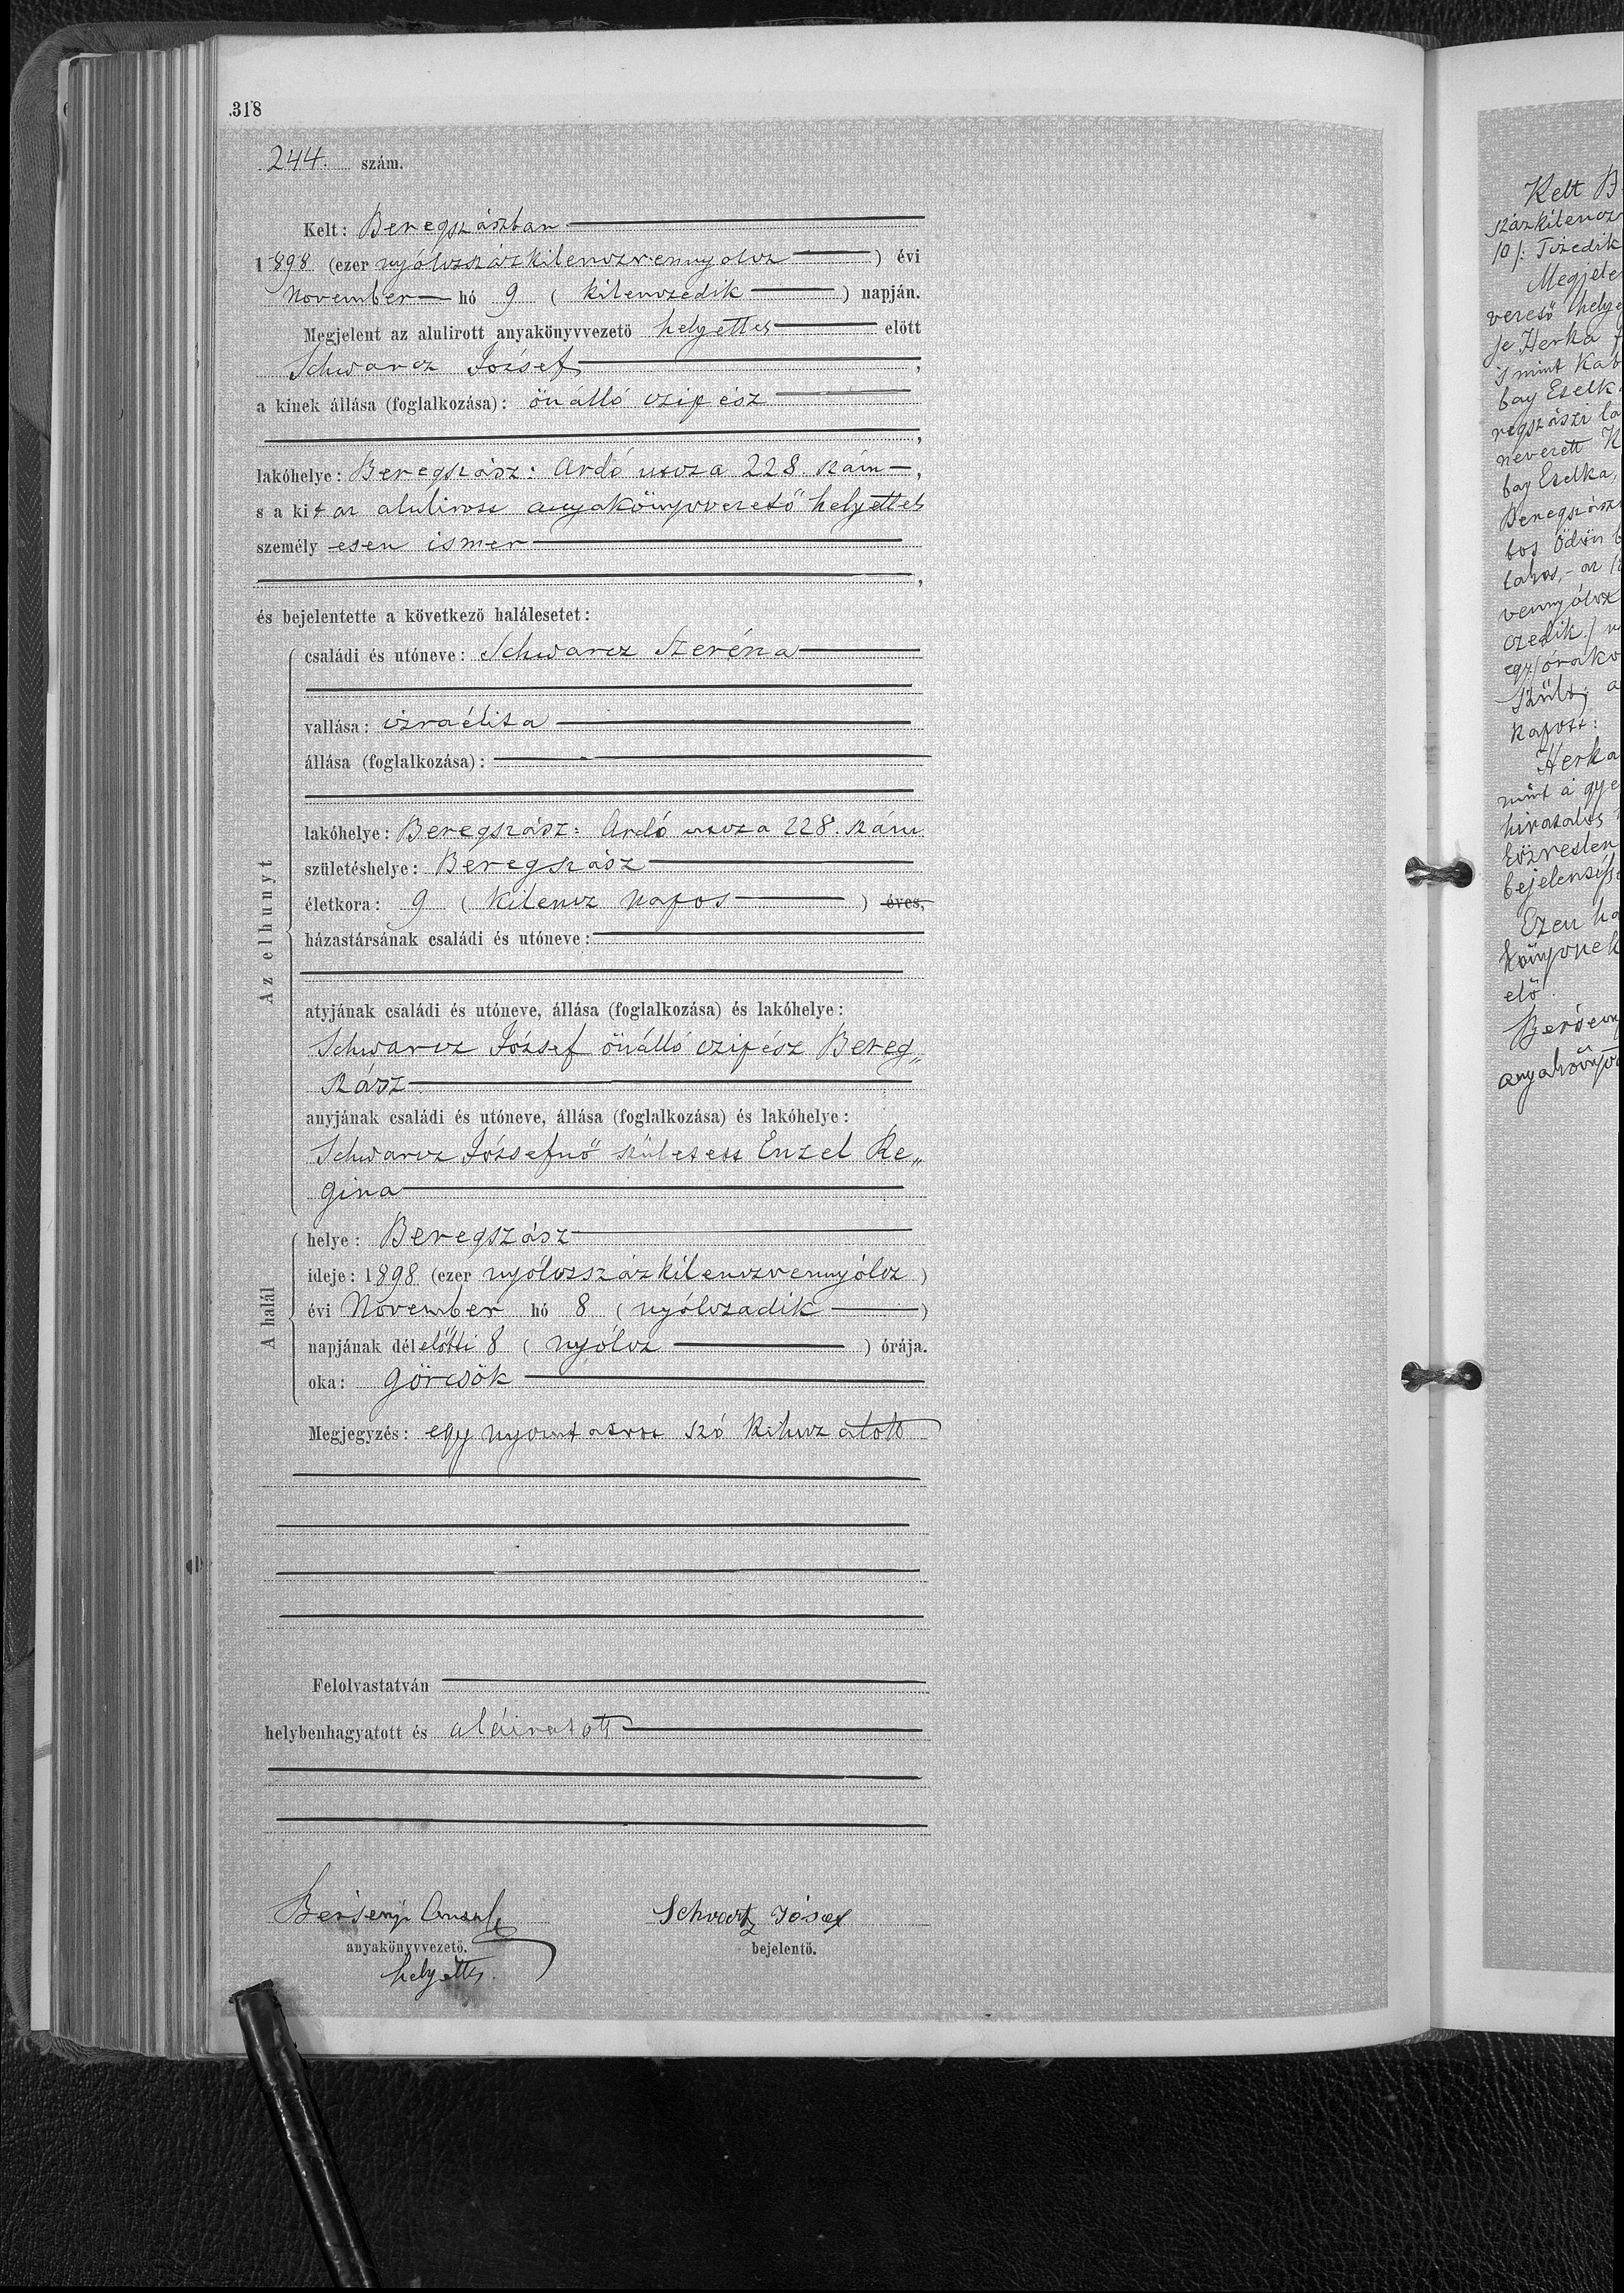 318
244. szám.
Kelt: Beregszászban
1898 (ezer nyólczszázkilenczvennyolcz) évi
November hó 9 (kilenczedik) napján.
Megjelent az alulirott anyakönyvvezető helyettes előtt
Schwarcz József,
a kinek állása (foglalkozása): önálló czipész
,
lakóhelye: Beregszász: Ardó utcza 228. szám,
s a kit az alulirott anyakönyvvezető helyettes
személyesen ismer
,
és bejelentette a következő halálesetet:
Az elhunyt
családi és utóneve: Schwarcz Szeréna
vallása: izraélita
állása (foglalkozása):
lakóhelye: Beregszász: Ardó utcza 228. szám
születéshelye: Beregszász
életkora: 9 (kilencz napos) éves,
házastársának családi és utóneve:
atyjának családi és utóneve, állása (foglalkozása) és lakóhelye:
Schwarcz József önálló czipész Bereg„
szász
anyjának családi és utóneve, állása (foglalkozása) és lakóhelye:
Schwarcz Józsefnő születess Enzel Re„
gina
A halál
helye: Beregszász
ideje: 1898 (ezer nyólczszázkilenczvennyólcz)
évi November hó 8 (nyólczadik)
napjának délelőtti 8 (nyólcz) órája.
oka: görcsök
Megjegyzés: egy nyomtatott szó kihuzatott
Felolvastatván
helybenhagyatott és aláiratott
Bersenyi
Schvartz József
anyakönyvvezető.
bejelentő.
helyettes.
Kelt B
százkilencz
10/: Tizedik
Megjele
vezető helye
je Herka
s mint Kab
bay Eselk
regszászi la
neverett K
bay Eselka,
Beregszász
bos Ödön
lakos,- az
vennyólcz
czedik./
egy/órako
Szüls; a
kapott:
Herka
mint a gye
hivatalos
közvetlen
bejelentésé
Ezen ha
könyvnek
elő
Berseny
anyakönyv